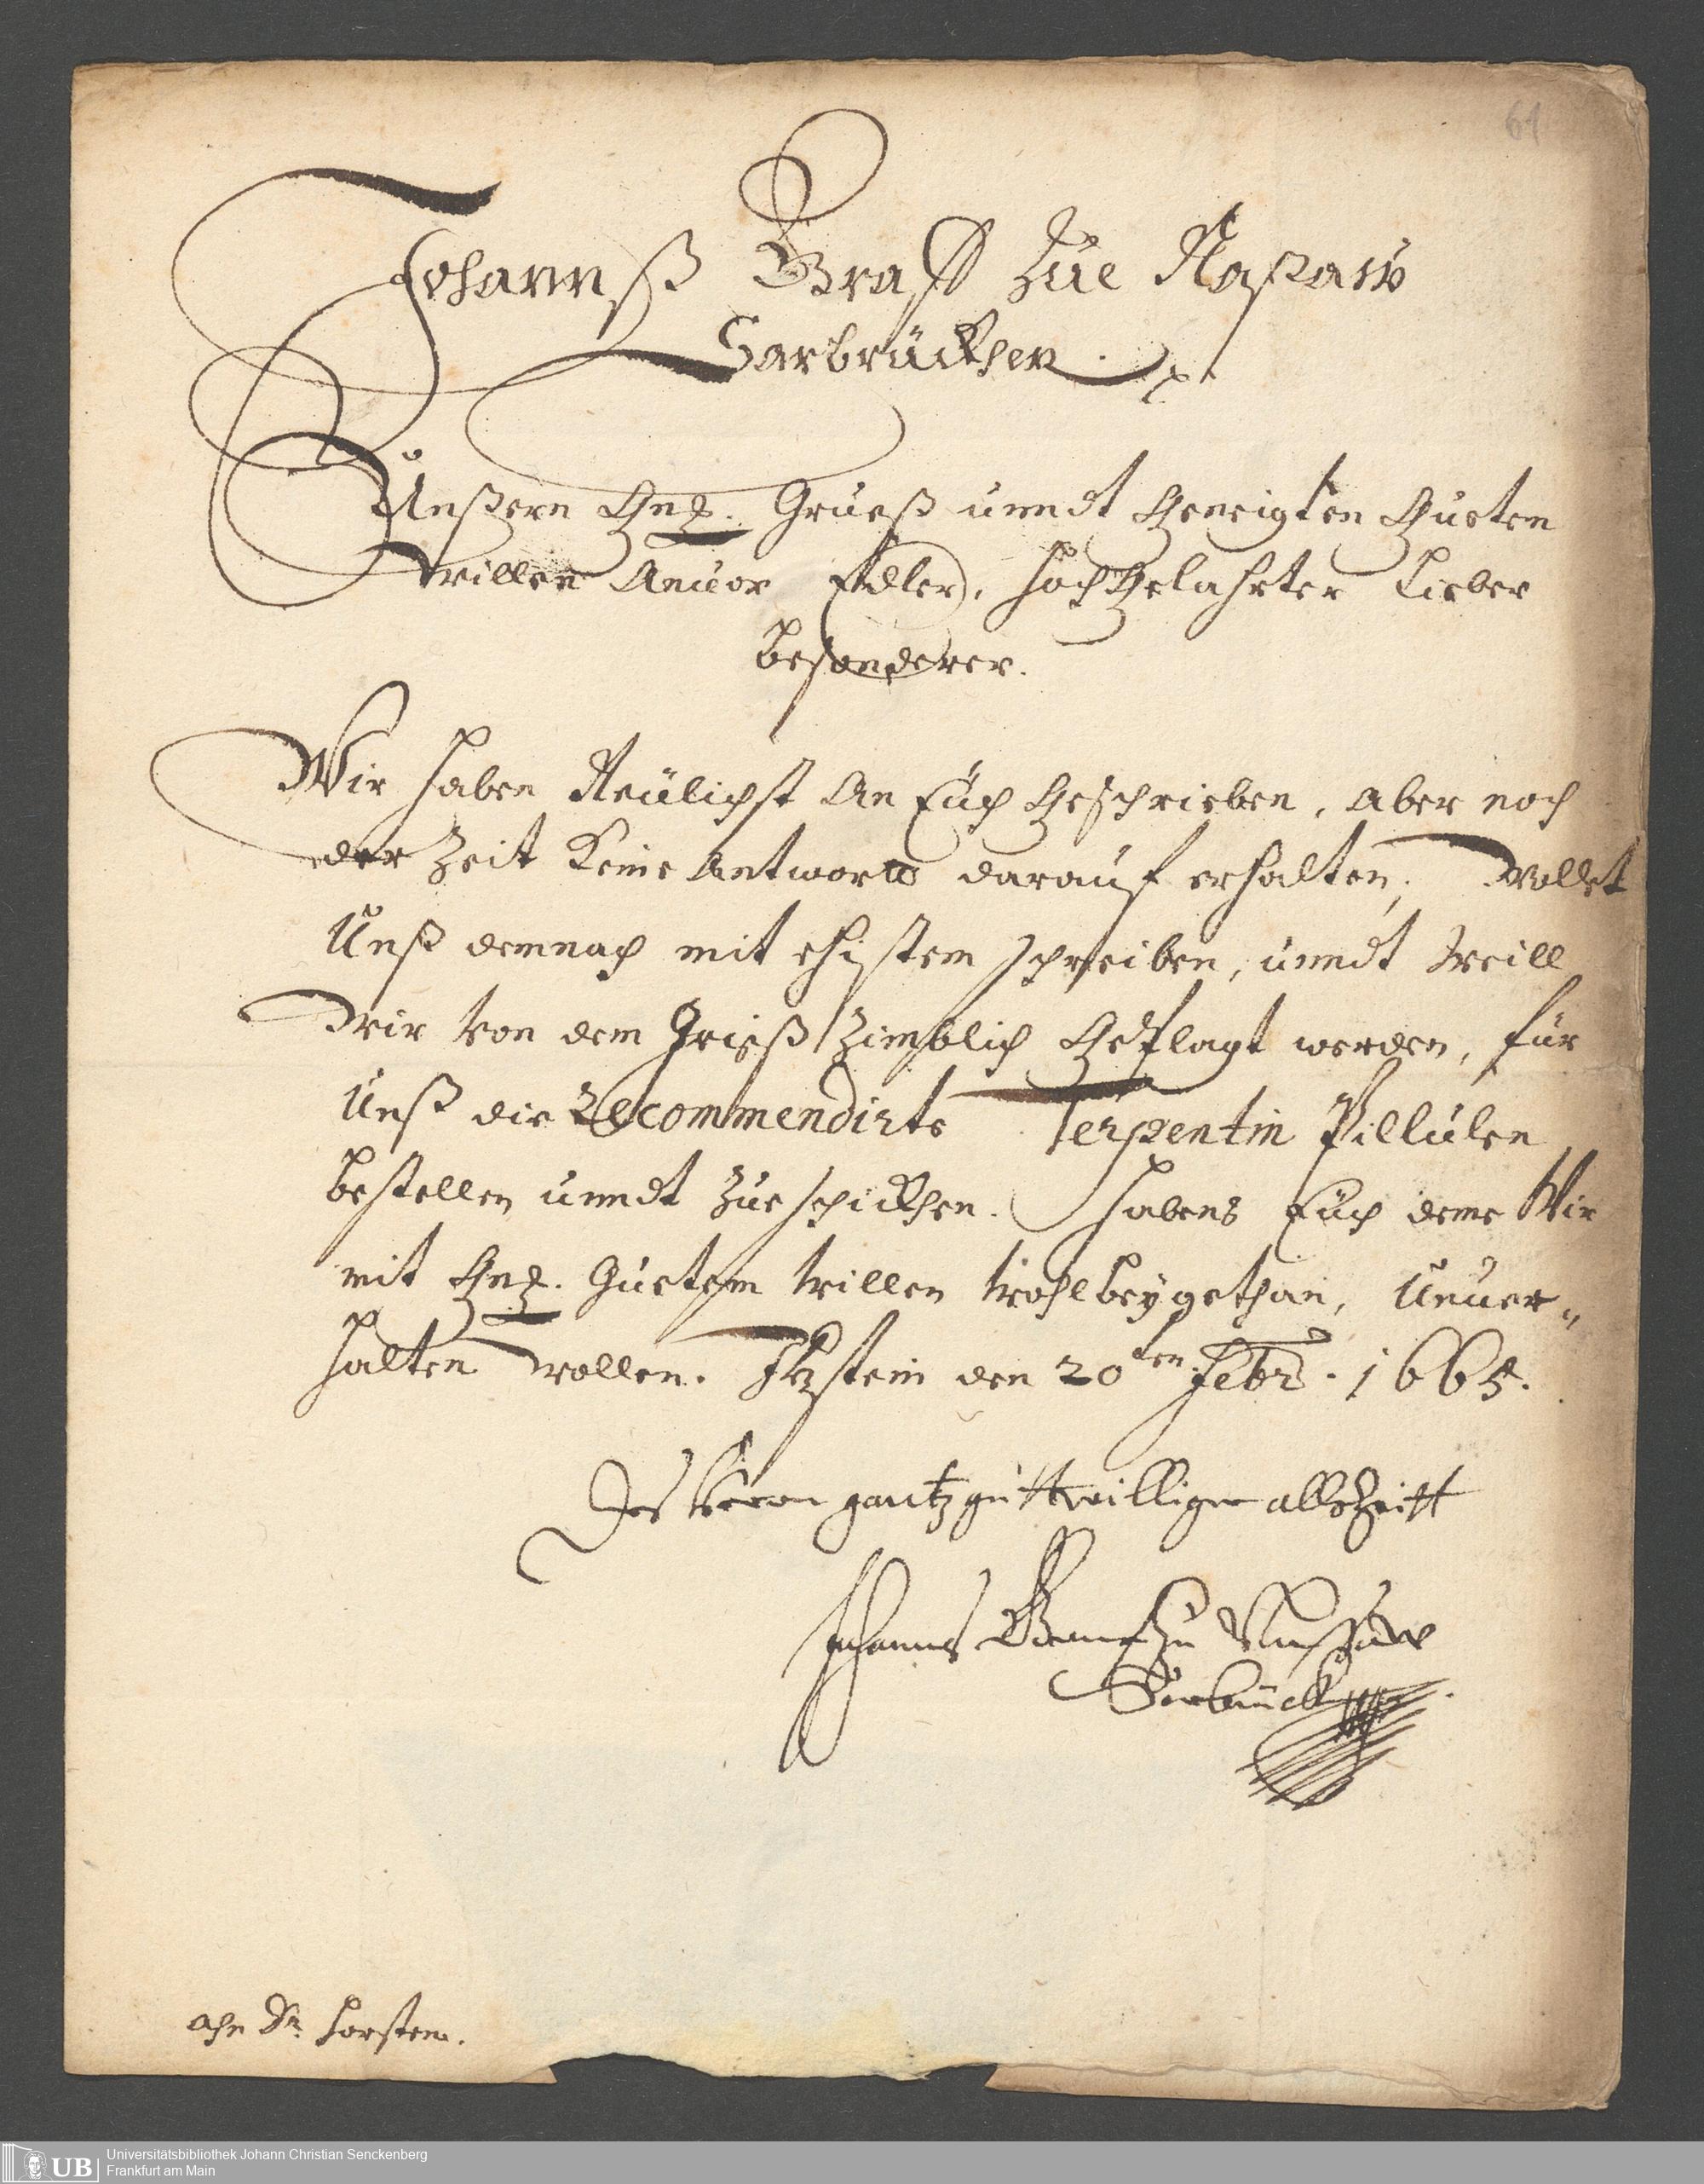 61
Johannß Graff zue Naßaw
Sarbrückhen.
Unßern Gnd. Grueß unndt Geneigten Gueten
willen Anuor Edler, hochGelahrter Lieber
besonderer.
Wir haben Neülichst An Euch Geschrieben, aber noch
der Zeit keine Antwortt darauf erhalten, wollet
Unß demnach mit ehistem schreiben, unndt weill
wir von dem Grieß Zimblich Geplagt werden, für
Unß die Recommendirte Terpentin Pillulen
bestellen unndt Zueschickhen. Habens Euch deme Wir
mit Gnd. Guetem willen wohlbeygethan, Unuer„
halten wollen. Itzstein den 20ten Febr. 1665.
Des Herrn gantz guttwilliger allezeitt
Johannes Graf zu Nassaw
Sarbrücken.
ahn Dr. Horsten.
Universitätsbibliothek Johann Christian Senckenberg
Frankfurt am Main
UB